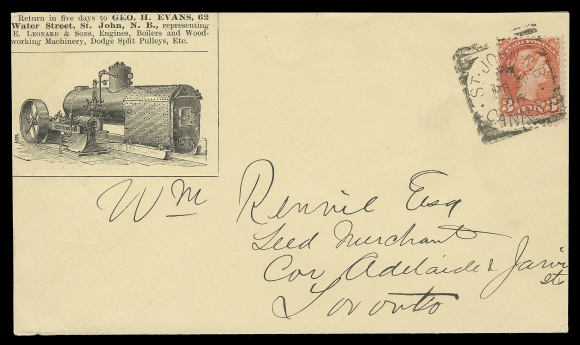 Return in five days to GEO. H. EVANS, 62
Water Street, St. John, N. B., representing
E. LEONARD & SONS, Engines, Boilers and Wood-
working Machinery, Dodge Split Pulleys, Etc.
Wm Rennie Esq
Seed Merchant
Cor Adelaide & Jarvis
sts
Toronto
ST. JOHN N.B.
3 CENTS 3